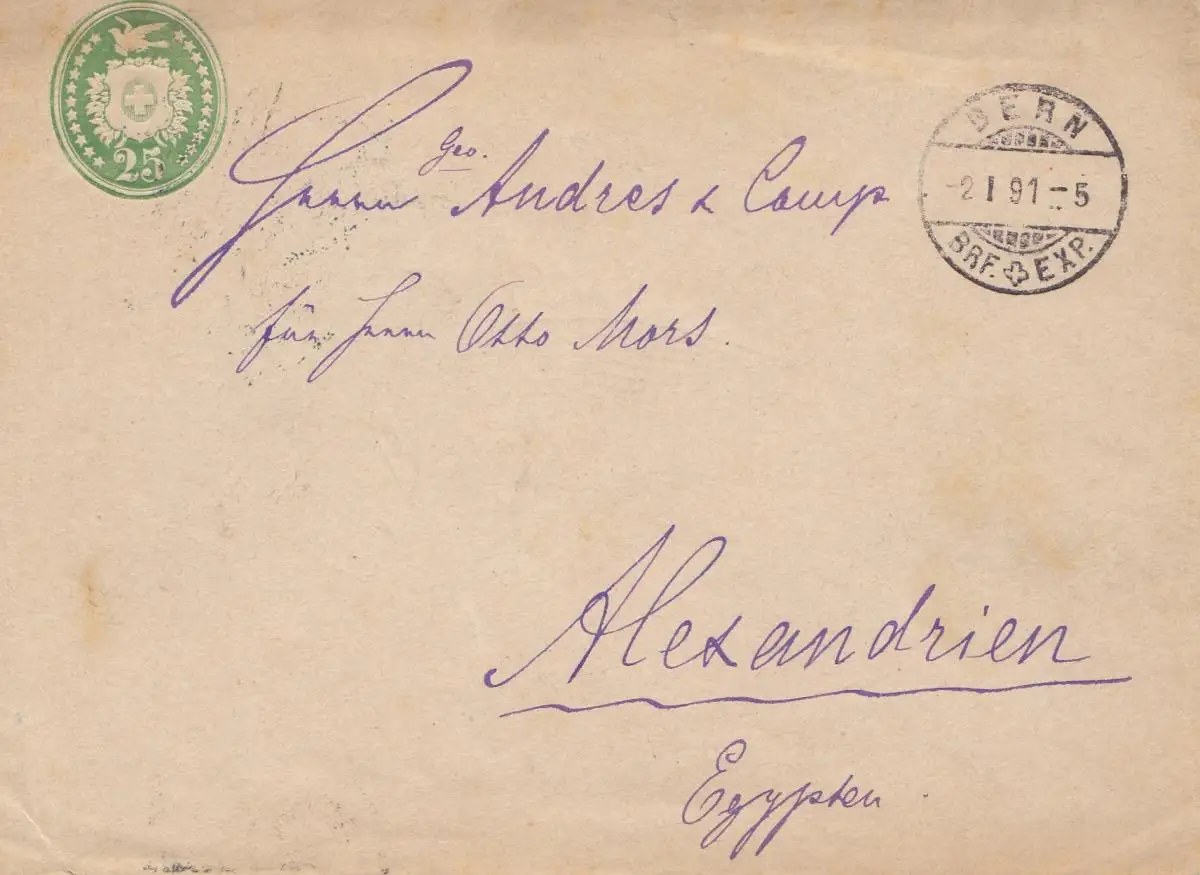 25
BERN
-2 I 91 -5
BRF. EXP.
Geo.
Herrn Andres & Comp
für Herrn Otto Mors.
Alexandrien
Egypten.